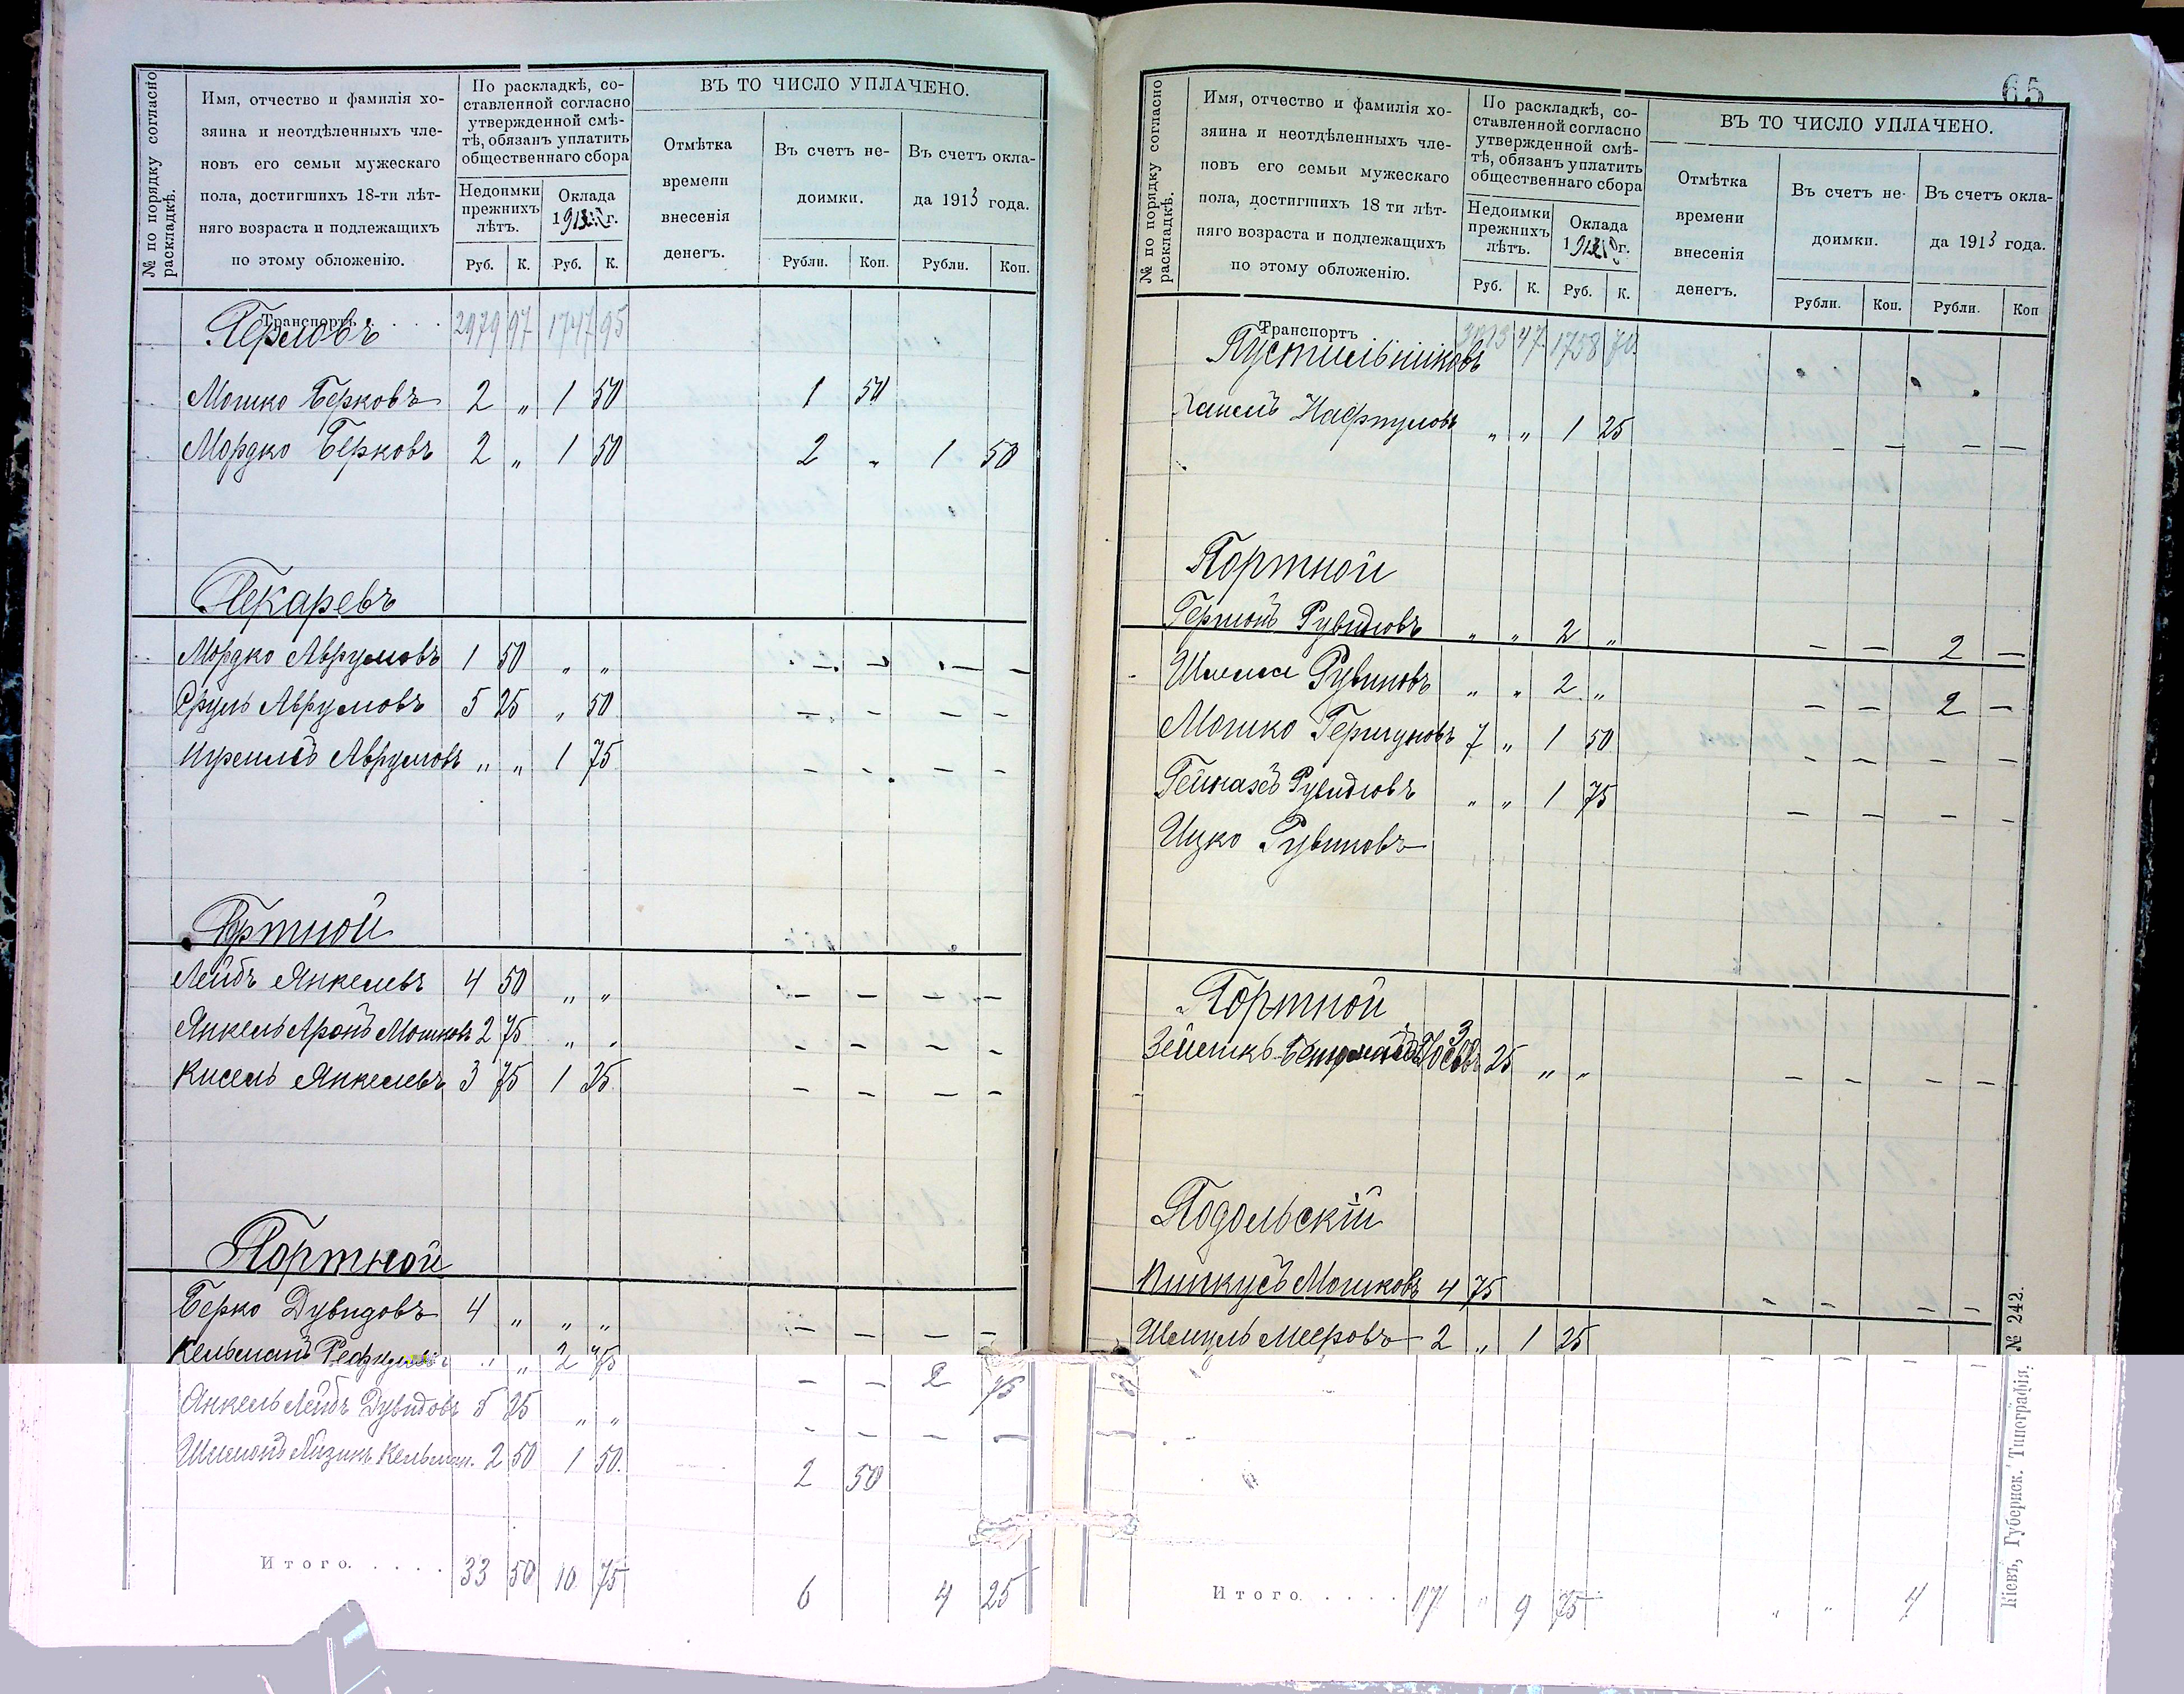 № по порядку согласно
раскладкѣ.
Имя, отчество и фамилія хо-
зяина и неотдѣленныхъ чле-
новъ его семьи мужескаго
пола, достигшихъ 18-ти лѣт-
няго возраста и подлежащихъ
по этому обложенію.
По раскладкѣ, со-
ставленной согласно
утвержденной смѣ-
тѣ, обязанъ уплатить
общественнаго сбора
Недоимки
прежнихъ
лѣтъ.
Оклада
191 г.
Руб. К. Руб. К.
ВЪ ТО ЧИСЛО УПЛАЧЕНО.
Отмѣтка
времени
внесенія
денегъ.
Въ счетъ не-
доимки.
Въ счетъ окла-
да 1913 года.
Рубли. Коп. Рубли. Коп.
Транспортъ . . . . 2979 97 1747 95
Перловъ
Мошко Берковъ 2 „ 1 50 1 50
Мордко Берковъ 2 „ 1 50 2 „ 1 50
Пекаревъ
Мордко Аврумовъ 1 50 „ „ — — — —
Сруль Аврумовъ 5 25 „ 50 — — — —
Аврумовъ „ „ 1 75 — — — —
Портной
Лейбъ Янкелевъ 4 50 „ „ — — — —
Янкель Аронъ Мошковъ 2 75 „ „ — — — —
Кисель Янкелевъ 3 75 1 25 — — — —
Портной
Берко Дувидовъ 4 „ „ „ — — — —
Кельманъ „ „ 2 75 — — 2 75
Янкель Лейбъ Дувидовъ 5 25 „ „ — — — —
Шимонъ Айзикъ Кельман. 2 50 1 50. 2 50
Итого. . . . . 33 50 10 75 6 4 25
65
№ по порядку согласно
раскладкѣ.
Имя, отчество и фамилія хо-
зяина и неотдѣленныхъ чле-
новъ его семьи мужескаго
пола, достигшихъ 18 ти лѣт-
няго возраста и подлежащихъ
по этому обложенію.
По раскладкѣ, со-
ставленной согласно
утвержденной смѣ-
тѣ, обязанъ уплатить
общественнаго сбора
Недоимки
прежнихъ
лѣтъ.
Оклада
191 г.
Руб. К. Руб. К.
ВЪ ТО ЧИСЛО УПЛАЧЕНО.
Отмѣтка
времени
внесенія
денегъ.
Въ счетъ не-
доимки.
Въ счетъ окла-
да 1913 года.
Рубли. Коп. Рубли. Коп
Транспортъ 3013 47 1758 70
Пустильниковъ
Нафтуловъ „ „ 1 25 — — — —
Портной
Рувиновъ „ „ 2 „ — — 2 —
Шлема Рувиновъ „ „ 2 „ — — 2 —
Мошко Гершуновъ 7 „ 1 50 — — — —
„ „ 1 75 — — — —
Ицко Рувиновъ
Портной
3 25 „ „ — — — —
Подольскій
Пинкусъ Мошковъ 4 75 — — — —
Шмуль Мееровъ 2 „ 1 25 — — — —
Итого. . . . . 17 „ 9 75 „ „ 4
Кіевъ, Губернск. Типографія, № 242.